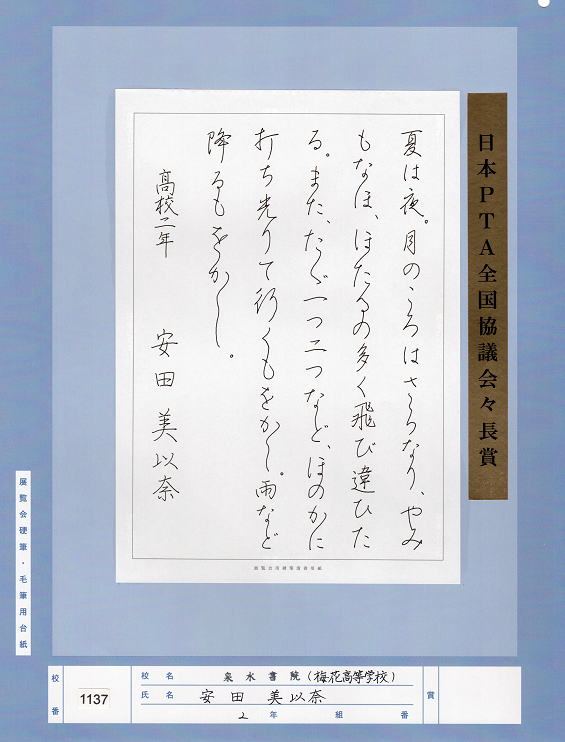 日本PTA全国協議会々長賞
夏は夜。月のころはさらなり、やみ
もなほ、ほたるの多く飛び違ひた
る。また、たゞ一つ二つなど、ほのかに
打ち光りて行くもをかし。雨など
降るもをかし。
高校二年 安田美以奈
展覧会用硬筆清書用紙
展覧会硬筆・毛筆用台紙
校番 1137
校名 泉水書院(梅花高等学校)
氏名 安田 美以奈
2年 組 番
賞